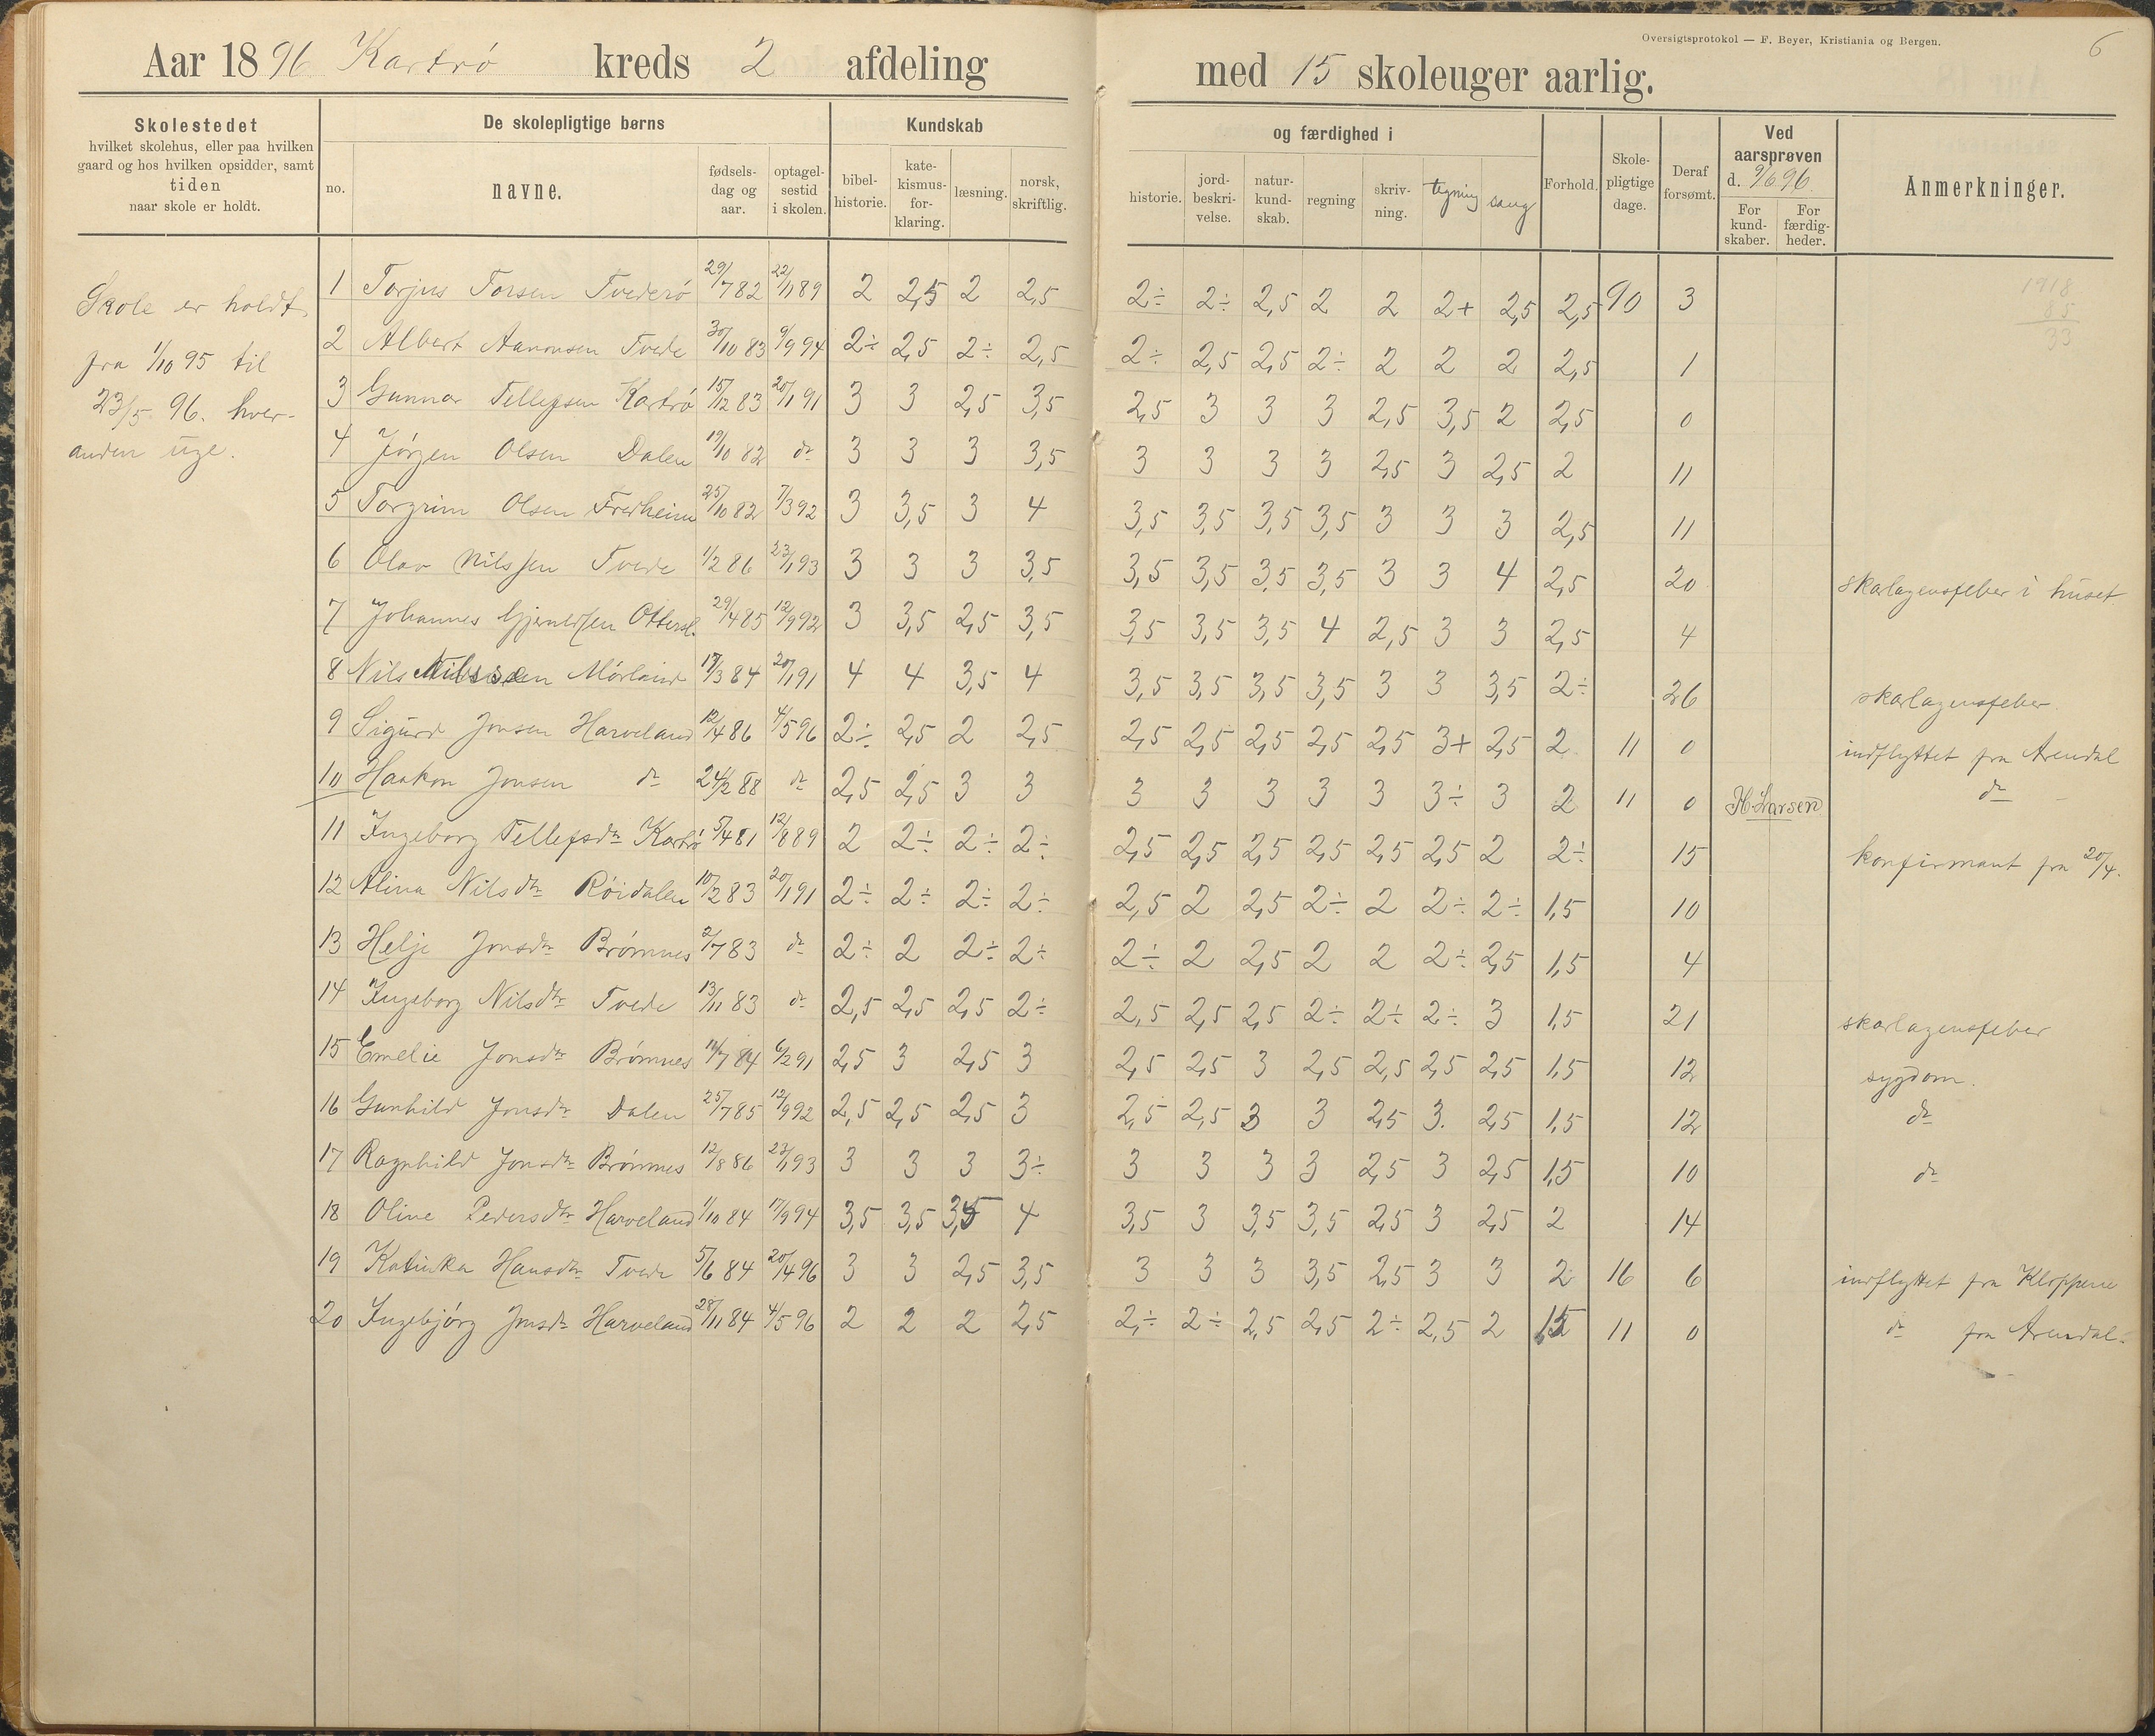 Oversigtsprotokol — F. Beyer, Kristiania og Bergen.
6
Aar 1896 Kartrø kreds 2 afdeling med 15 skoleuger aarlig.
Skolestedet
hvilket skolehus, eller paa hvilken
gaard og hos hvilken opsidder, samt
tiden
naar skole er holdt.
De skolepligtige børns
no. navne. fødsels-dag og aar. optagel-sestid i skolen.
Kundskab og færdighed i
bibel-historie. kate-kismus-for-klaring. læsning. norsk, skriftlig. historie. jord-beskri-velse. natur-kund-skab. regning skriv-ning. tegning sang
Forhold. Skole-pligtige dage. Deraf forsømt.
Ved aarsprøven d. 9/6 96.
For kund-skaber. For færdig-heder.
Anmerkninger.
Skole er holdt
fra 1/10 95 til
23/5 96. hver-
anden uge.
1918
85
33
1 Torjus Torsen Tvederø 29/7 82 22/1 89 2 2,5 2 2,5 2÷ 2÷ 2,5 2 2 2+ 2,5 2,5 90 3
2 Albert Aanonsen Tvede 30/10 83 9/9 94 2÷ 2,5 2÷ 2,5 2÷ 2,5 2,5 2÷ 2 2 2 2,5 1
3 Gunnar Tellefsen Kartrø 15/12 83 20/1 91 3 3 2,5 3,5 2,5 3 3 3 2,5 3,5 2 2,5 0
4 Jørgen Olsen Dalen 19/10 82 do 3 3 3 3,5 3 3 3 3 2,5 3 2,5 2 11
5 Torgrim Olsen Fredheim 25/10 82 7/3 92 3 3,5 3 4 3,5 3,5 3,5 3,5 3 3 3 2,5 11
6 Olav Nilssen Tvede 1/2 86 23/1 93 3 3 3 3,5 3,5 3,5 3,5 3,5 3 3 4 2,5 20 skarlagensfeber i huset
7 Johannes Gjerulfsen Ottersl. 29/4 85 12/9 92 3 3,5 2,5 3,5 3,5 3,5 3,5 4 2,5 3 3 2,5 4
8 Nils Nilssen Mørland 17/3 84 20/1 91 4 4 3,5 4 3,5 3,5 3,5 3,5 3 3 3,5 2÷ 26 skarlagensfeber.
9 Sigurd Jonsen Harveland 12/4 86 4/5 96 2÷ 2,5 2 2,5 2,5 2,5 2,5 2,5 2,5 3+ 2,5 2 11 0 indflyttet fra Arendal
10 Haakon Jonsen do 24/2 88 do 2,5 2,5 3 3 3 3 3 3 3 3÷ 3 2 11 0 H. Larsen do
11 Ingeborg Tellefsdr Kartrø 5/4 81 12/8 89 2 2÷ 2÷ 2÷ 2,5 2,5 2,5 2,5 2,5 2,5 2 2÷ 15 konfirmant fra 20/4.
12 Alina Nilsdtr Røidalen 10/2 83 20/1 91 2÷ 2÷ 2÷ 2÷ 2,5 2 2,5 2÷ 2 2÷ 2÷ 1,5 10
13 Helje Jonsdtr Brømnes 2/7 83 do 2÷ 2 2÷ 2÷ 2÷ 2 2,5 2 2 2÷ 2,5 1,5 4
14 Ingeborg Nilsdtr Tvede 13/11 83 do 2,5 2,5 2,5 2÷ 2,5 2,5 2,5 2÷ 2÷ 2÷ 3 1,5 21 skarlagensfeber
15 Emelie Jonsdtr Brømnes 14/7 84 6/2 91 2,5 3 2,5 3 2,5 2,5 3 2,5 2,5 2,5 2,5 1,5 12 sygdom.
16 Gunhild Jonsdtr Dalen 25/7 85 12/9 92 2,5 2,5 2,5 3 2,5 2,5 3 3 2,5 3. 2,5 1,5 12 do
17 Ragnhild Jonsdtr Brømnes 12/8 86 23/1 93 3 3 3 3÷ 3 3 3 3 2,5 3 2,5 1,5 10 do
18 Oline Pedersdtr Harveland 1/10 84 17/9 94 3,5 3,5 3,5 4 3,5 3 3,5 3,5 2,5 3 2,5 2 14
19 Katinka Hansdtr Tvede 5/6 84 20/4 96 3 3 2,5 3,5 3 3 3 3,5 2,5 3 3 2 16 6 indflyttet fra Kloppene
20 Ingebjørg Jonsdr Harveland 28/11 84 4/5 96 2 2 2 2,5 2,÷ 2÷ 2,5 2,5 2÷ 2,5 2 1,5 11 0 do fra Arendal.